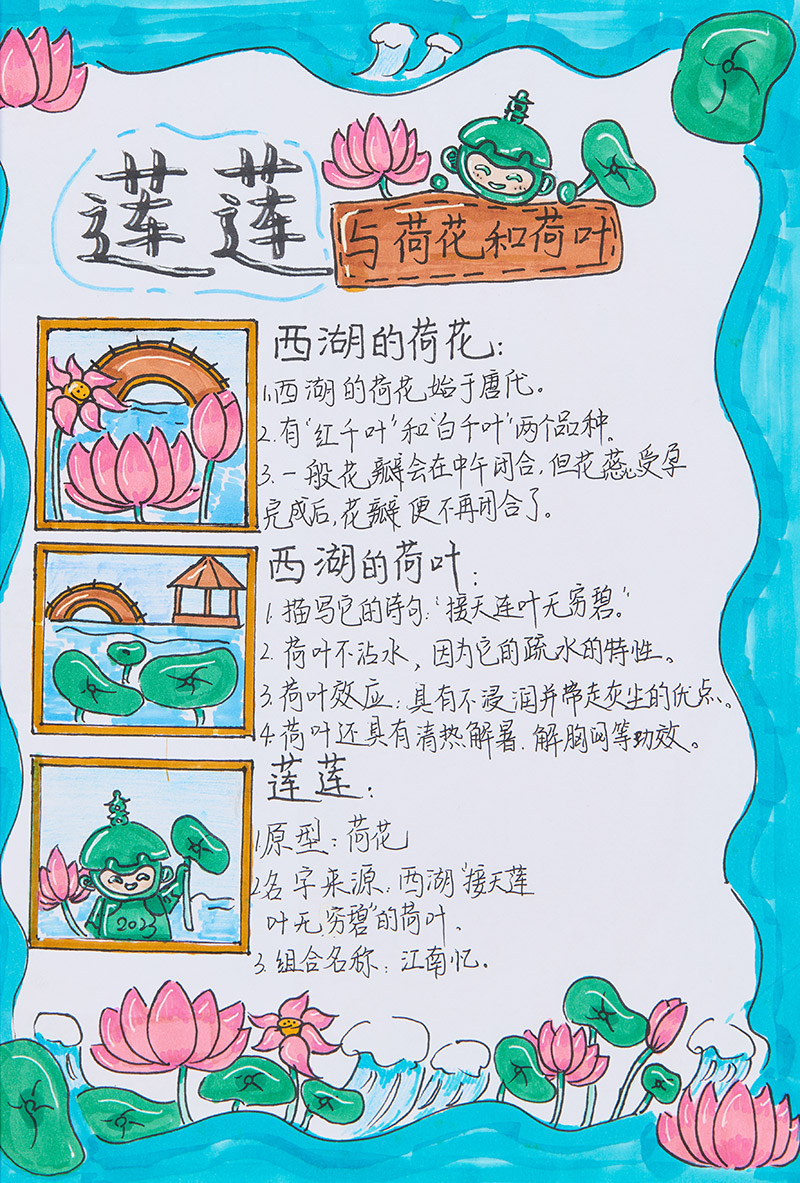 莲莲
与荷花和荷叶
西湖的荷花:
1.西湖的荷花始于唐代。
2.有“红千叶”和“白千叶”两个品种。
3.一般花瓣会在中午闭合,但花蕊受孕
完成后,花瓣便不再闭合了。
西湖的荷叶:
1.描写它的诗句:“接天连叶无穷碧。”
2.荷叶不沾水、因为它的疏水的特性。
3.荷叶效应:具有不浸润并带走灰尘的优点。
4.荷叶还具有清热解暑、解胸闷等功效。
莲莲:
1.原型:荷花
2.名字来源:西湖“接天莲
叶无穷碧”的荷叶.
3.组合名称:江南忆。
2023